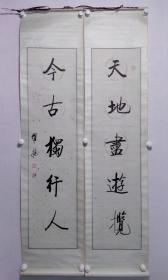 天地盡遊攬
今古獨行人